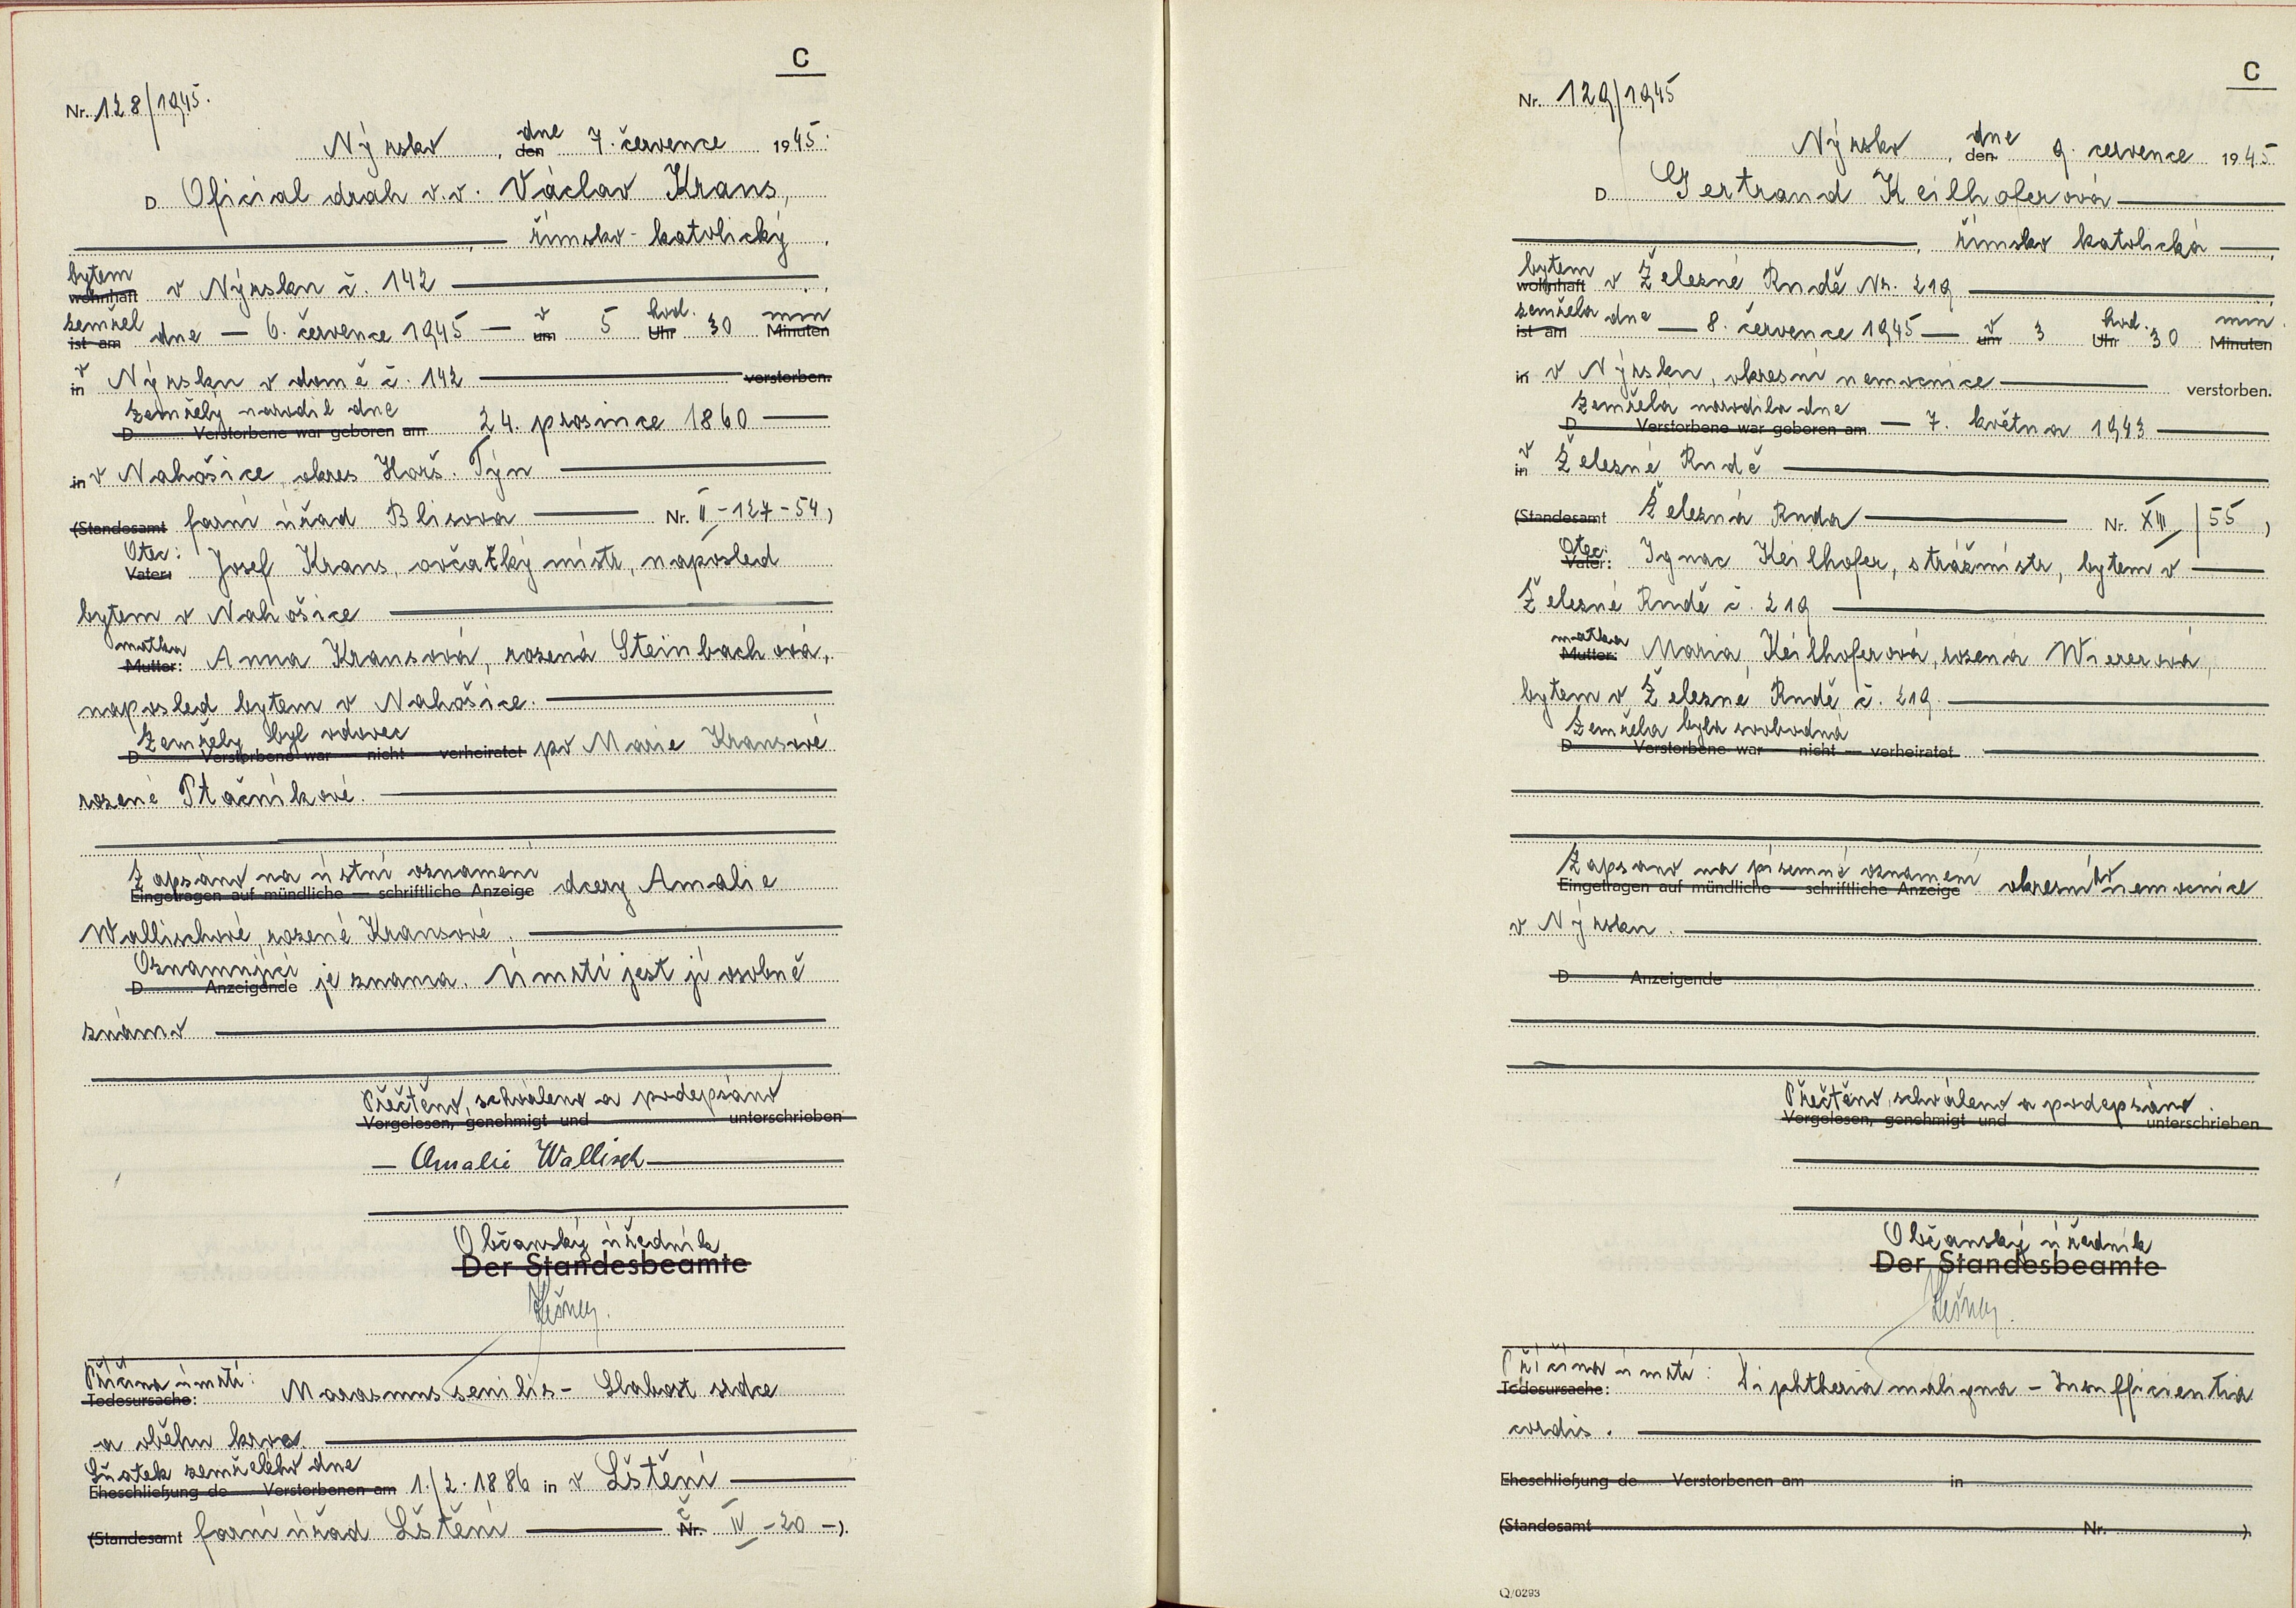 C
Nr. 128/1945.
Nýrsko, dne den 7. července 1945.
D Oficial drah v.v. Václav Krans,
římsko-katolický
bytem wohnhaft v Nýrsku č. 142
zemřel ist am dne — 6. července 1945 — v um 5 hod. Uhr 30 min Minuten
v in Nýrsku v domě č. 142 verstorben.
Zemřelý narodil dne
D Verstorbene war geboren am 24. prosince 1860
in v Nahošice, okres Horš. Týn
(Standesamt farní úřad Blisova Nr. II-127-54)
Otec: Vater: Josef Krans, ovčatký mistr, naposled
bytem v Nahošice
matka Mutter: Anna Kransová, rozená Steinbachová,
naposled bytem v Nahošice.
Zemřelý byl vdovec
D Verstorbene war — nicht — verheiratet po Marie Kransové
rozené Ptáčníkové.
Zapsáno na ústní oznámení
Eingetragen auf mündliche — schriftliche Anzeige dcery Amalie
Wallischové, rozené Kransové.
Oznamující
D Anzeigende je znama. Úmrtí jest jí osobně
známo
Přečteno, schváleno a podepsáno
Vorgelesen, genehmigt und unterschrieben
— Amalie Wallisch
Občanský úředník
Der Standesbeamte
Příčina úmrtí:
Todesursache: Marasmus senilis - Slabost srdce
a oběhu krve.
Sňatek zemřelého dne
Eheschließung de Verstorbenen am 1./2. 1886 in v Lštění
(Standesamt farní úřad Lštění č. Nr. IV - 20 -).
C
Nr. 129/1945
Nýrsko, dne den 9. července 1945
D Gertraud Keilhoferová
římsko katolická
bytem wohnhaft v Železné Rudě Nr. 219
zemřela ist am dne — 8. července 1945 — v um 3 hod. Uhr 30 min. Minuten
in v Nýrsku, okresní nemocnice verstorben.
Zemřela narodila dne
D Verstorbene war geboren am — 7. května 1943
v in Železné Rudě
(Standesamt Železná Ruda Nr. XIII/55)
Otec: Vater: Ignac Keilhofer, strážmistr, bytem v
Železné Rudě č. 219
matka Mutter: Maria Keilhoferová, rozená Wiererová,
bytem v Železné Rudě č. 219.
Zemřela byla svobodná
D Verstorbene war — nicht — verheiratet
Zapsano na písemné oznamení
Eingetragen auf mündliche — schriftliche Anzeige okresní nemocnice
v Nýrsku.
D Anzeigende
Přečteno, schváleno a podepsáno
Vorgelesen, genehmigt und unterschrieben
Občanský úředník
Der Standesbeamte
Příčina úmrtí:
Todesursache: Diphtheria maligna - Insufficientia
cordis.
Eheschließung de Verstorbenen am in
(Standesamt Nr. ).
Q/0293